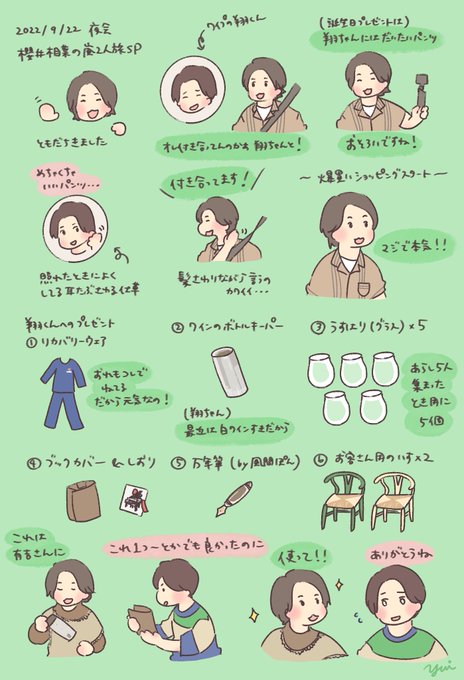 2022/9/22 夜会
櫻井相葉の嵐2人旅SP
ともだちきました
ワイプの翔くん
オレ付き合ってんのかな 翔ちゃんと!
(誕生日プレゼントは)
翔ちゃんにはだいたいパンツ
おそろいですね!
めちゃくちゃ
いいパンツ…
照れたときによく
してる耳たぶさわる仕草
付き合ってます!
髪さわりながら言うの
カワイイ…
〜爆買いショッピングスタート〜
マジで本気!!
翔くんへのプレゼント
①リカバリーウェア
おれもコレで
ねてる
だから元気なの!
②ワインのボトルキーパー
(翔ちゃん)
最近は白ワインすきだから
③うすはり(グラス)×5
あらし5人
集まった
とき用に
5個
④ブックカバー&しおり
⑤万年筆(by風間ぽん)
⑥お客さん用のいす×2
これは
有吉さんに
これ1つ〜とかでも良かったのに
使って!!
ありがとうね
yui